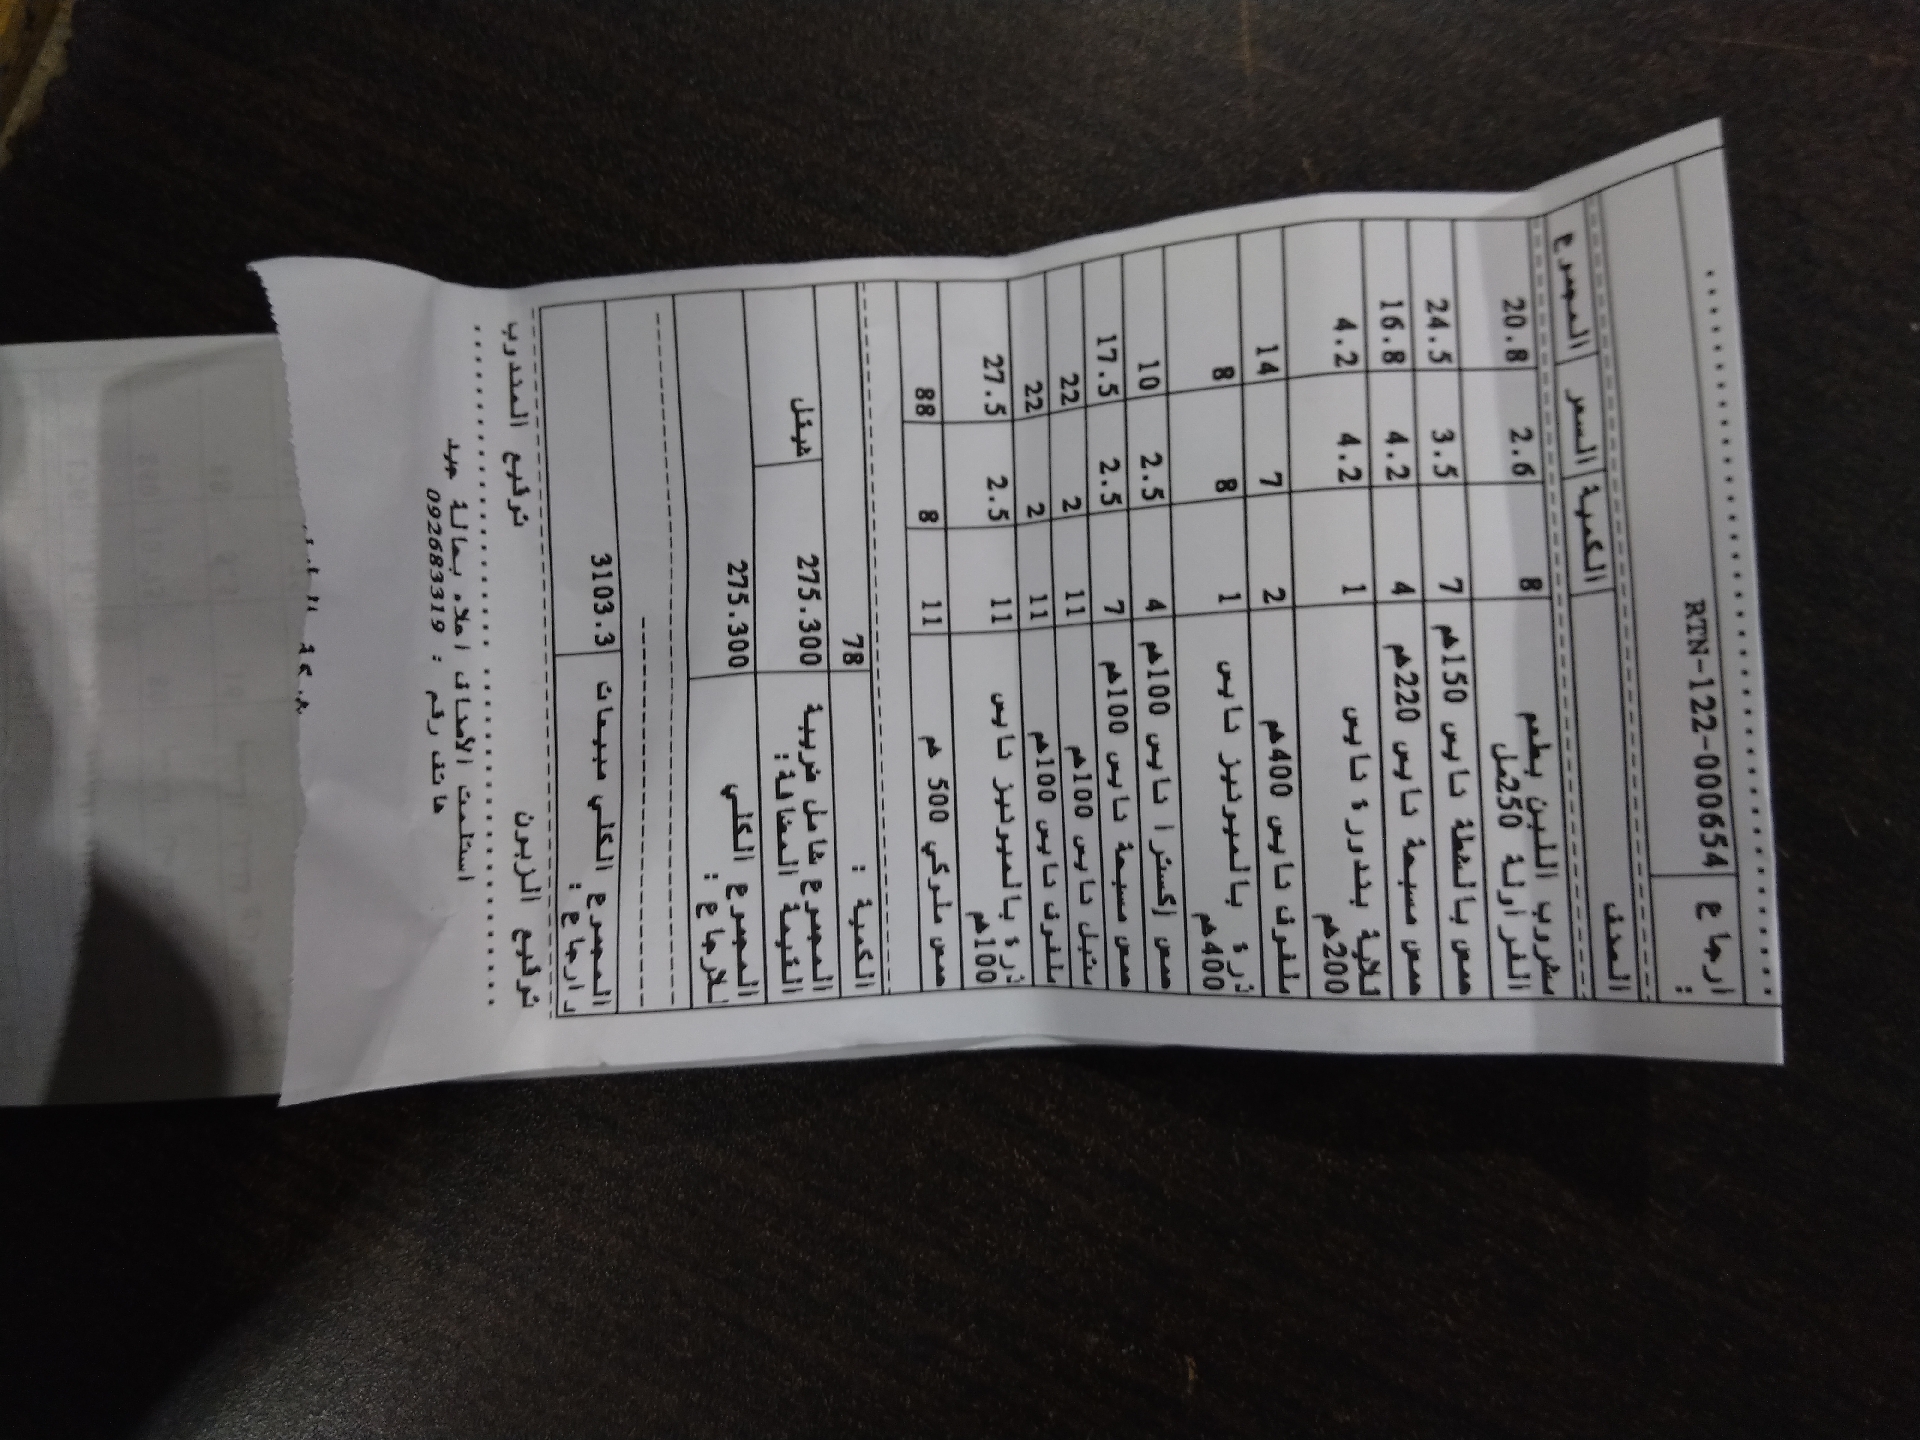 ارجاع : RTN-122-000654
الصنف الكمية السعر المجموع
مشروب اللبن بطعم الفراولة 250مل 8 2.6 20.8
حمص بالشطة نايس 150غم 7 3.5 24.5
حمص مسبحة نايس 220غم 4 4.2 16.8
قلاية بندورة نايس 200غم 1 4.2 4.2
ملفوف نايس 400غم 2 7 14
ذرة بالميونيز نايس 400غم 1 8 8
حمص إكسترا نايس 100غم 4 2.5 10
حمص مسبحة نايس 100غم 7 2.5 17.5
متبل نايس 100غم 11 2 22
ملفوف نايس 100غم 11 2 22
ذرة بالميونيز نايس 100غم 11 2.5 27.5
حمص ملوكي 500 غم 11 8 88
الكمية : 78
المجموع شامل ضريبة القيمة المضافة: 275.300 شيقل
المجموع الكلي للارجاع : 275.300
المجموع الكلي مبيعات وارجاع : 3103.3
توقيع الزبون توقيع المندوب
استلمت الأصناف اعلاه بحالة جيد
هاتف رقم : 092683319